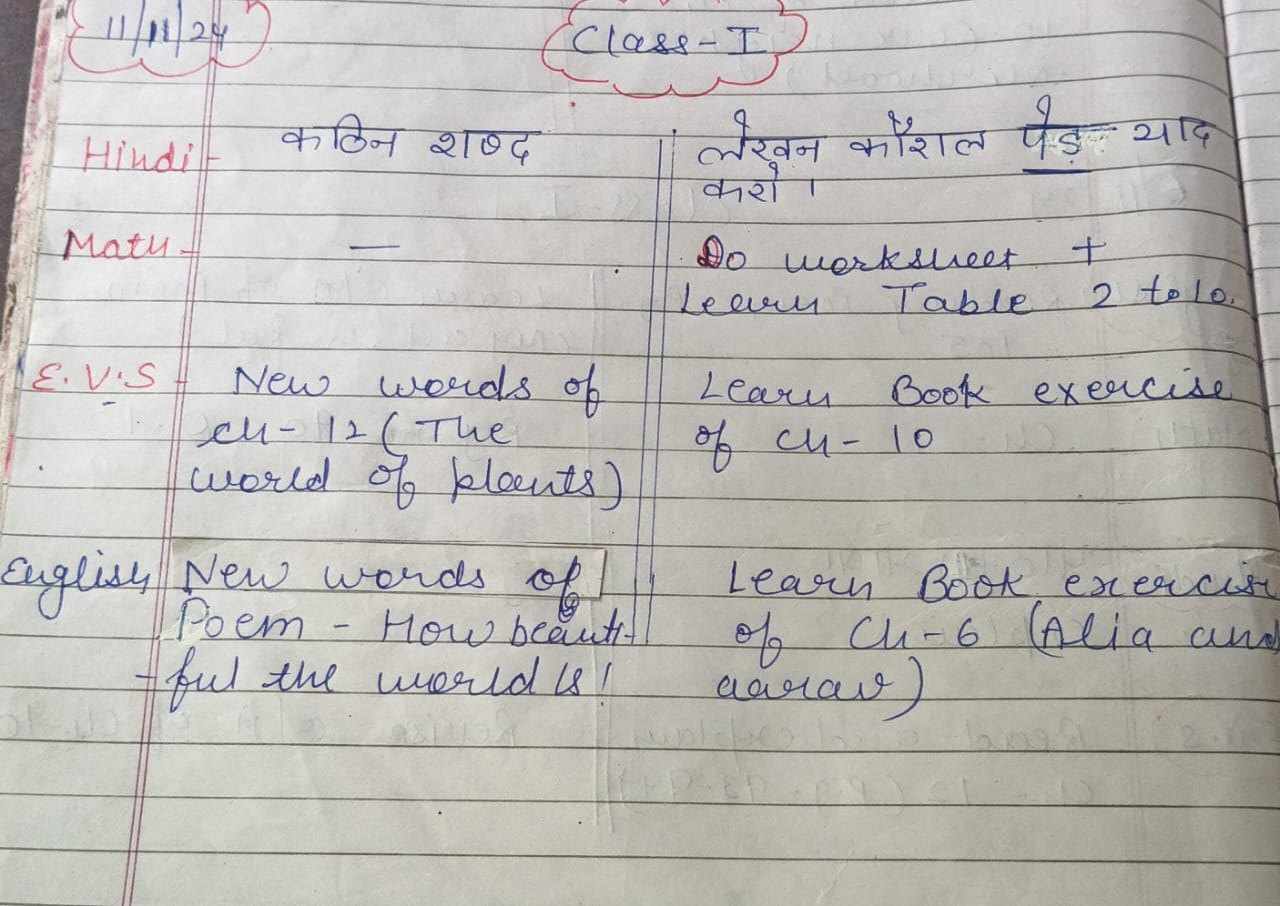 11/11/24
Class-I
Hindi - कठिन शब्द लेखन कौशल पेड़ याद
करो ।
Math - — Do worksheet +
Learn Table 2 to 10.
E.V.S - New words of Learn Book exercise
ch-12 (The of ch-10
world of plants)
English New words of Learn Book exercise
Poem - How beauti- of Ch-6 (Alia and
-ful the world is! aarav)